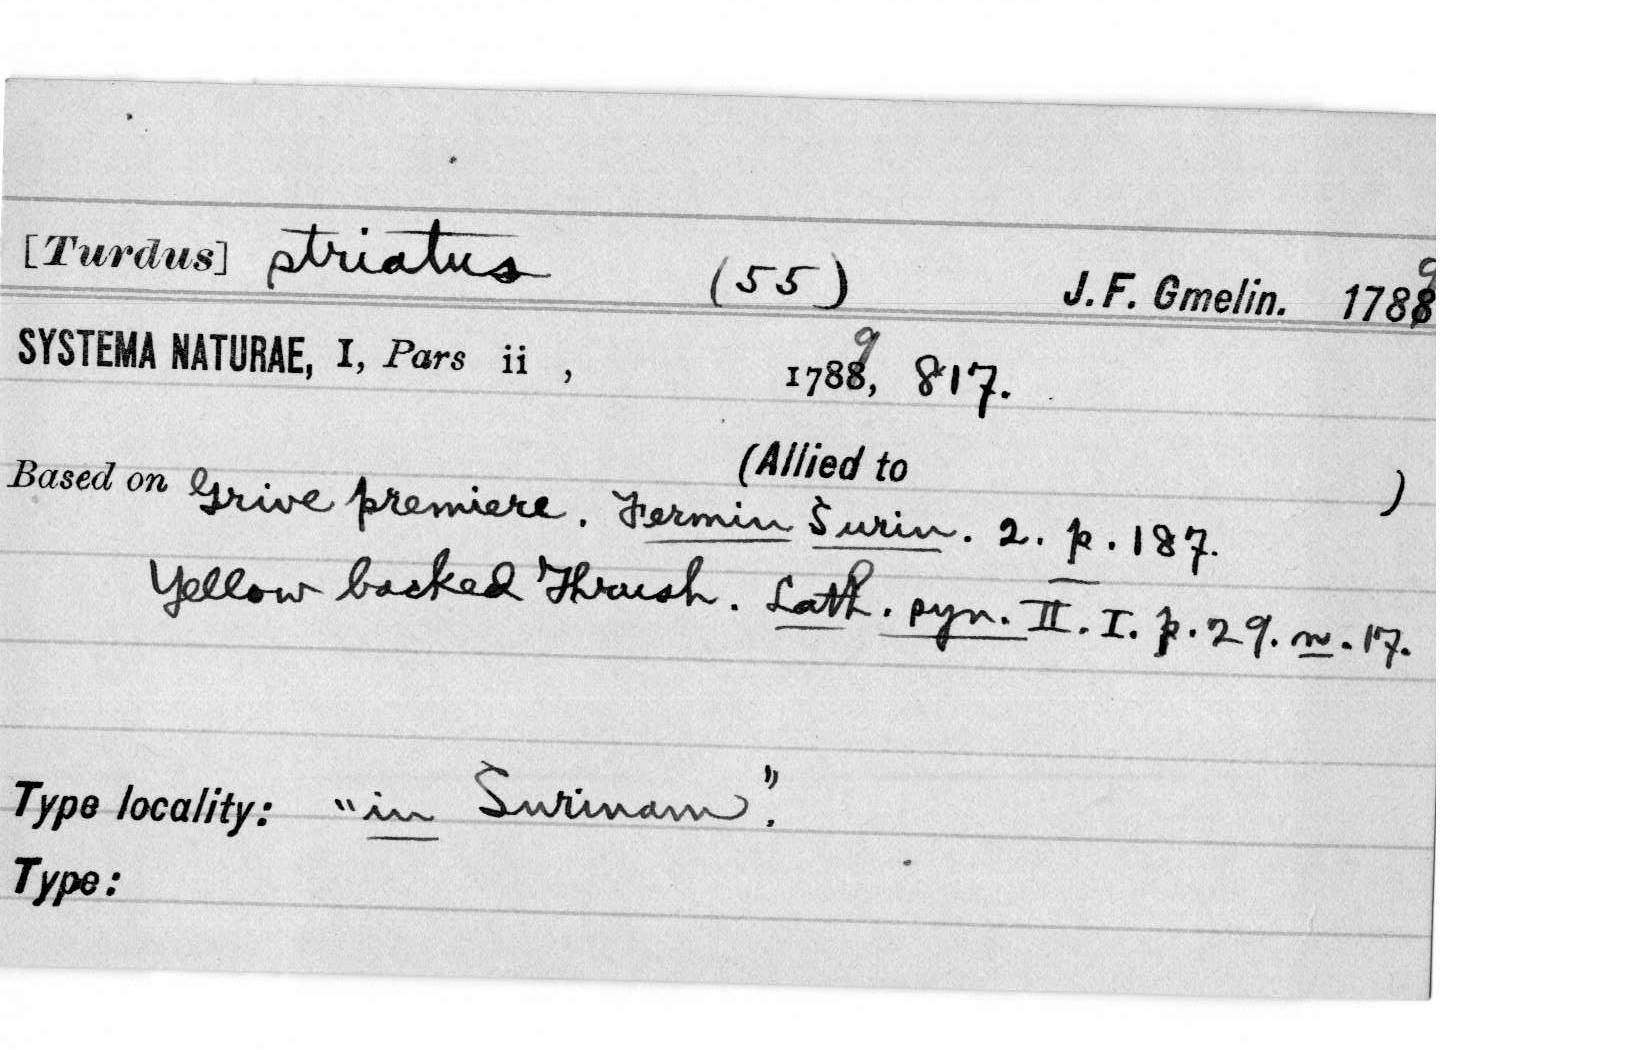 [Turdus] striatus (55) J. F. Gmelin. 1789
SYSTEMA NATURAE, I, Pars ii , 1789, 817.
(Allied to )
Based on Grive premiere. Fermin Surin. 2. p. 187.
Yellow backed Thrush. Lath. syn. II. I. p. 29. n. 17.
Type locality: "in Surinam".
Type: